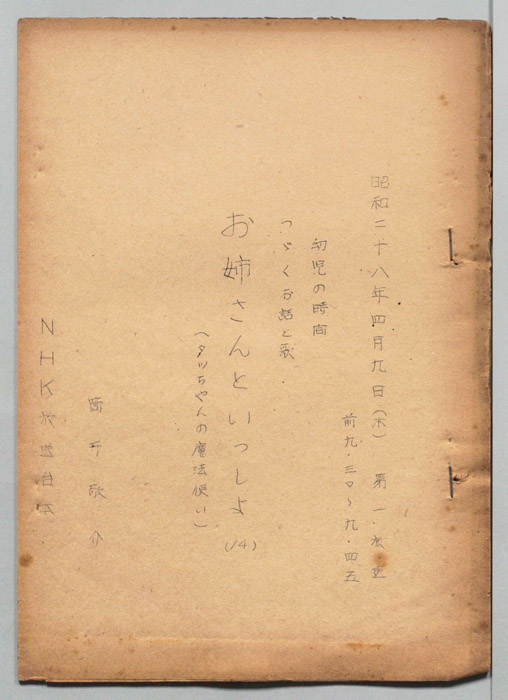 昭和二十八年四月九日(木) 第一放送
前九・三〇〜九・四五
幼児の時間
つゞくお話と歌・
お姉さんといっしよ (14)
(タッちゃんの魔法使い)
筒井敬介
NHK放送台本